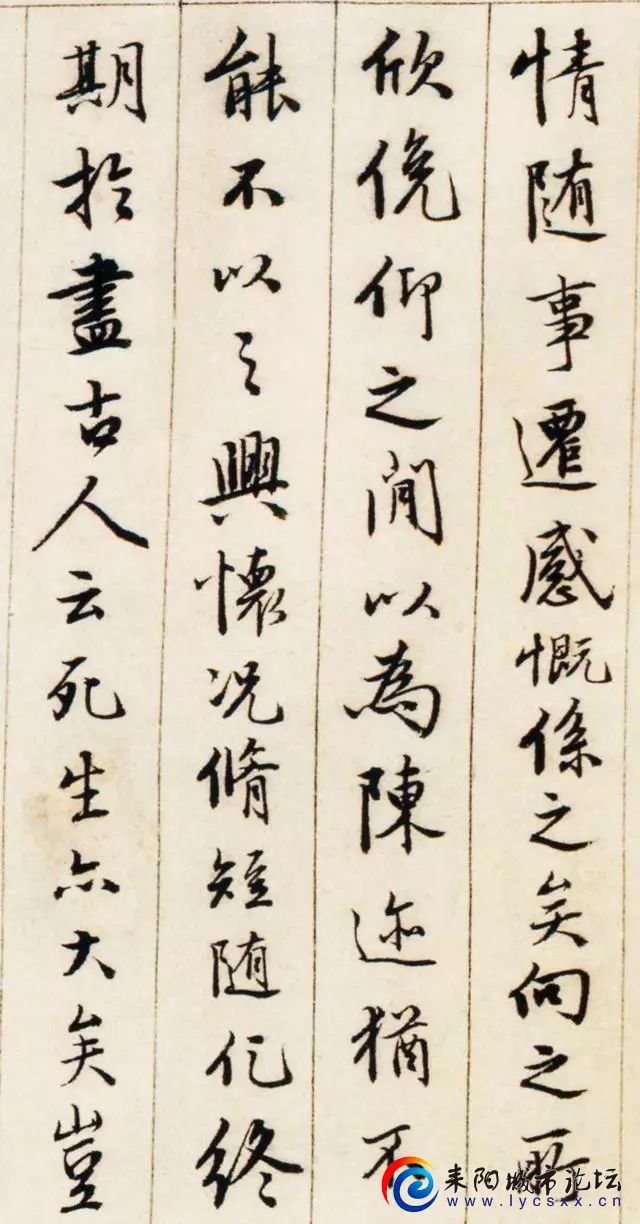 情随事遷感慨係之矣向之所
欣俛仰之閒以為陳迹猶不
能不以之興懷况脩短随化終
期於盡古人云死生亦大矣豈
耒阳城市论坛
www.lycsxx.cn